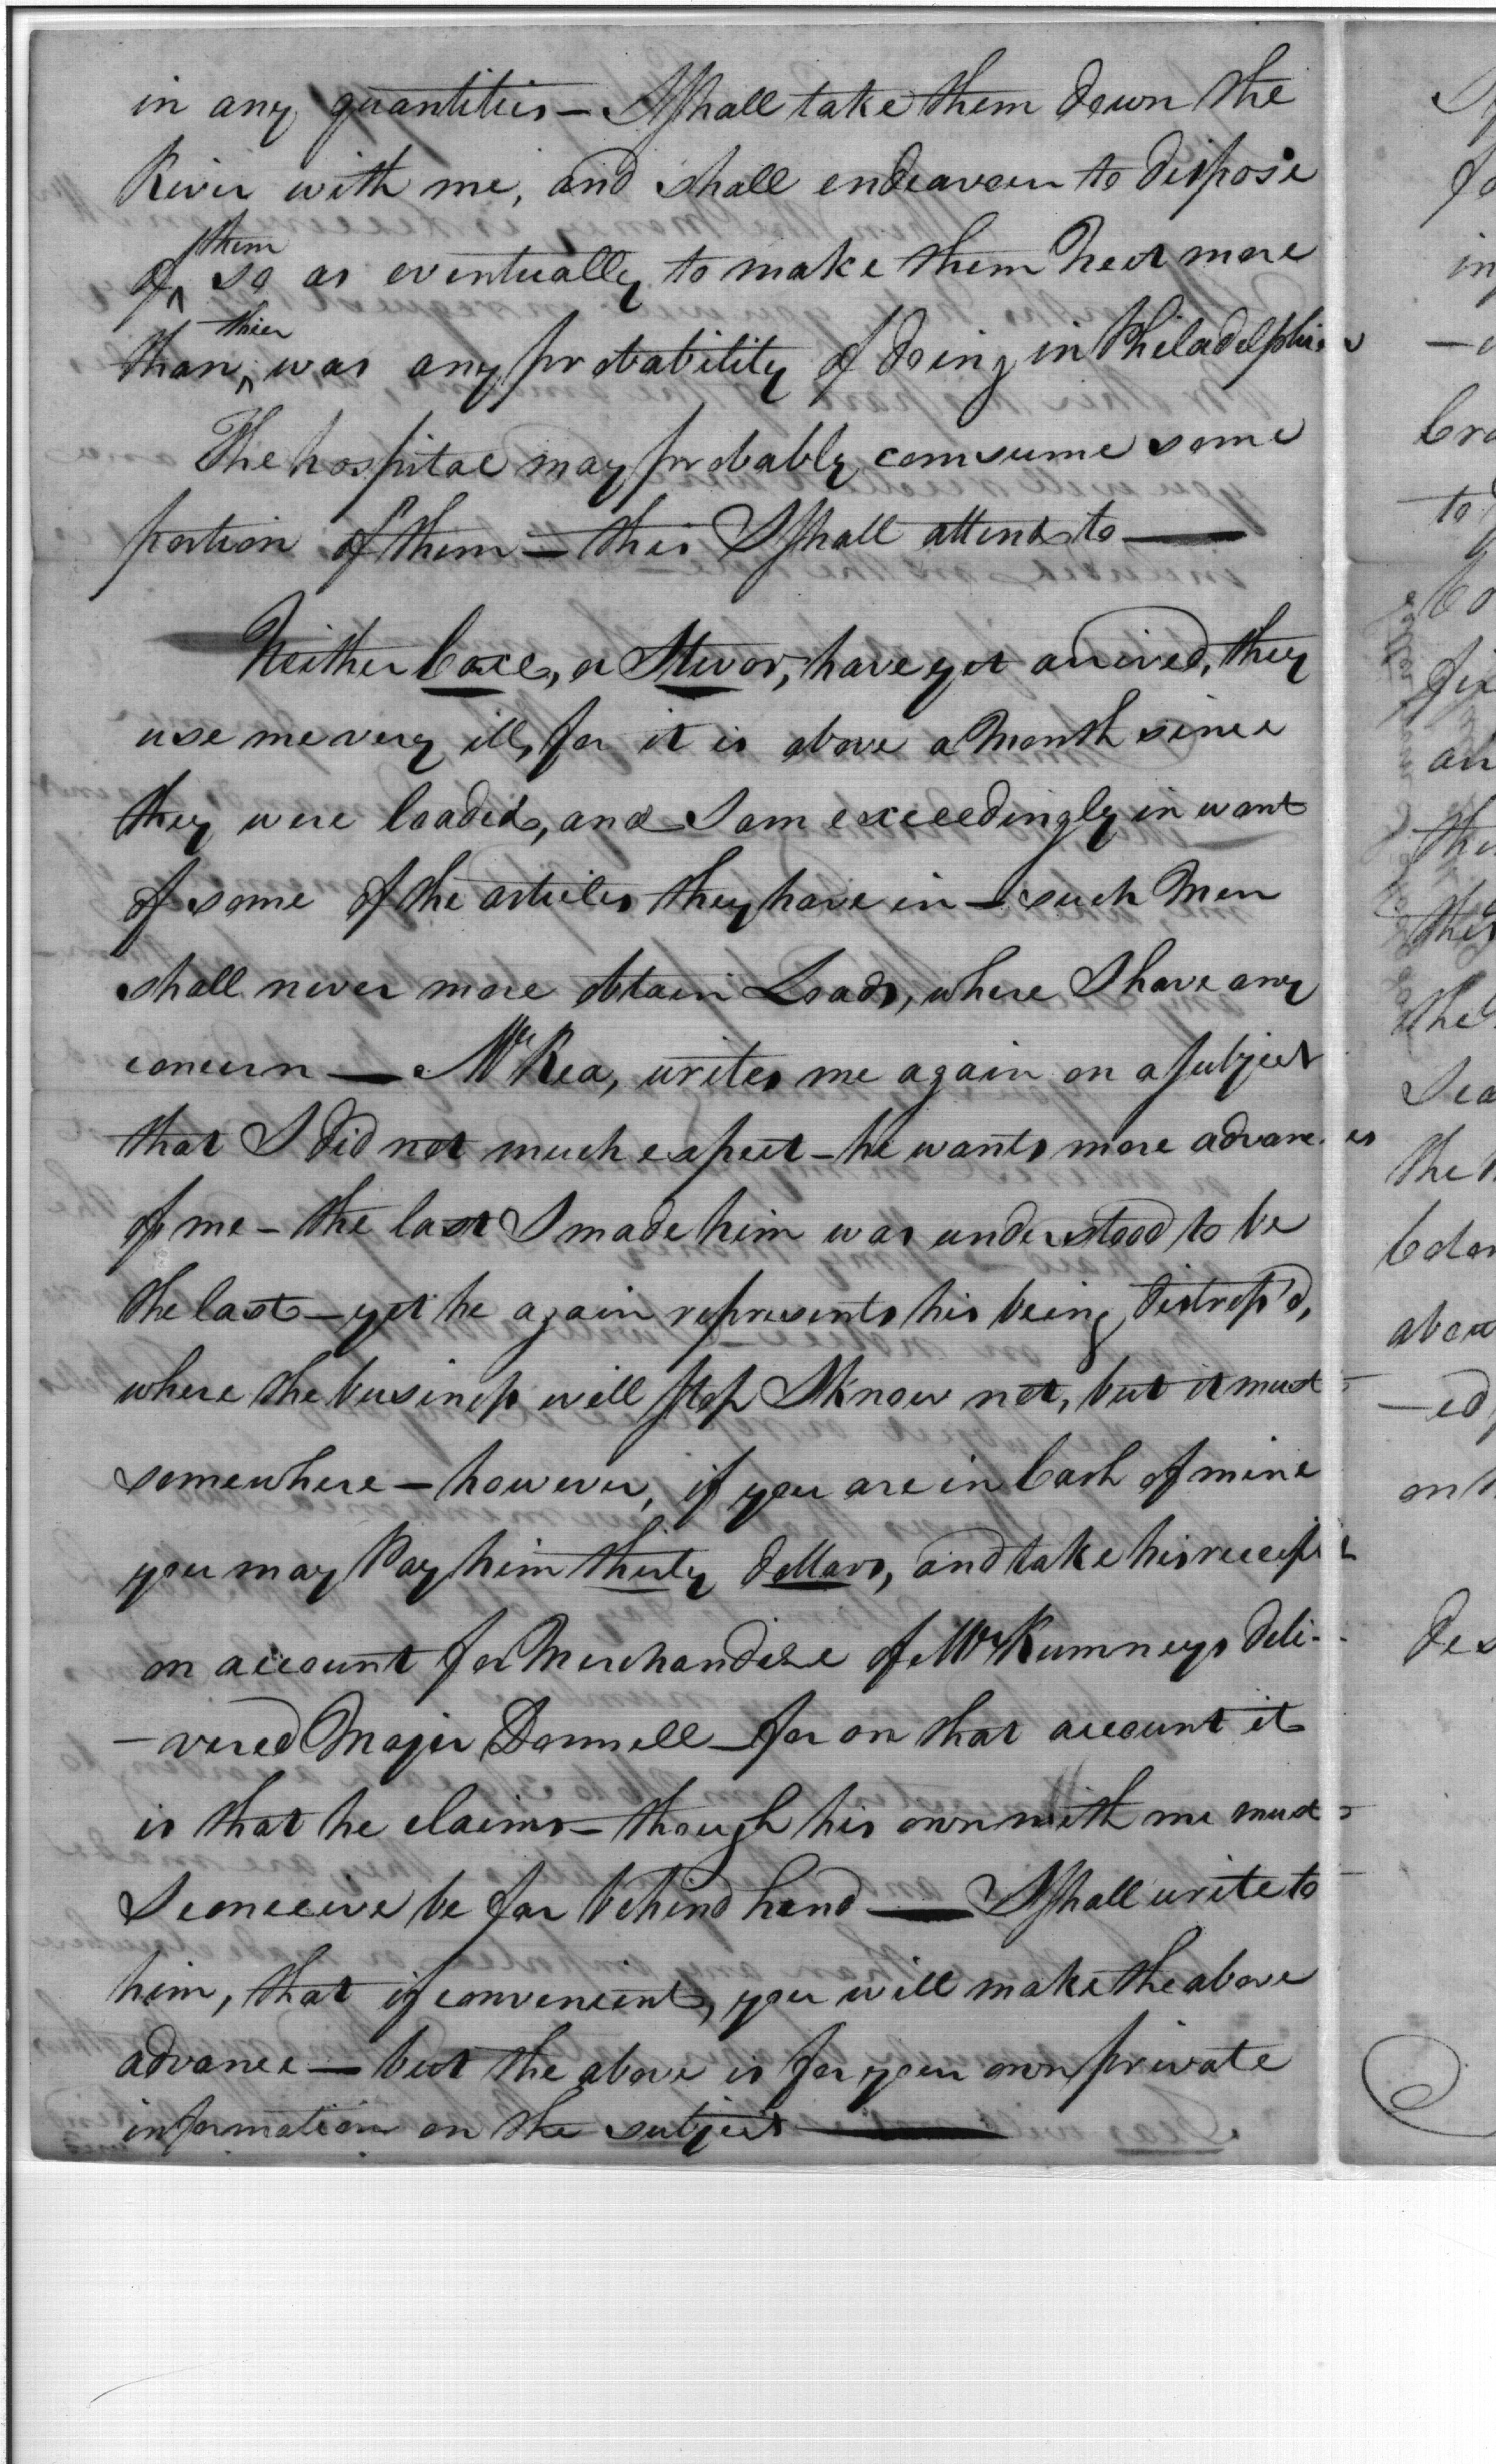 in any quantities – I shall take them down the
River with me, and shall endeavour to dispose
of them so as eventually to make them neet more
than thier was any probability of doing in Philadelphia
The hospital may probably comsume some
portion of them – this I shall attend to —
Neither Coxe, or Stevor, have yet arrived, they
use me very ill, for it is above a Month since
they were loaded, and I am exceedingly in want
of some of the articles they have in – such Men
shall never more obtain Loads, where I have any
concern — Mr Rea, writes me again on a subject
that I did not much expect – he wants more advances
of me – the last I made him was understood to be
the last – yet he again represents his being distress'd,
where the business will stop I know not, but it must
somewhere – however, if you are in Cash of mine
you may Pay him thirty dollars, and take his receipt
on account for Merchandise of Mr Rumneys deli-
-vered Major Donnell – for on that account it
is that he claims – though his own with me must
I conceive be far behind hand — I shall write to
him, that if convenient, you will make the above
advance — but the above is for your own private
information on the subject —